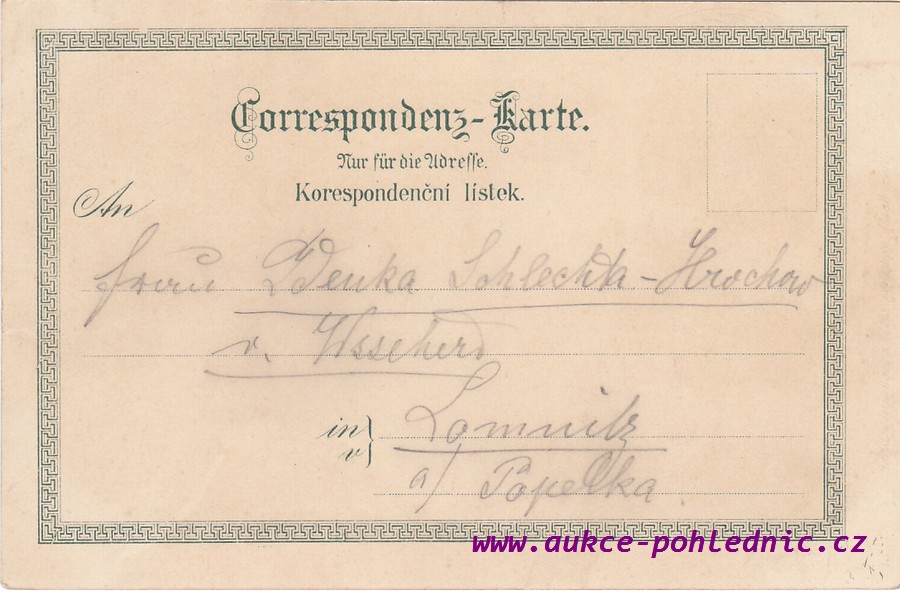 Correspondenz-Karte.
Nur für die Adresse.
Korespondenční lístek.
An
Frau Zdenka Schlechta-Hrochow
v. Wssehrd
in
v
Lomnitz
a/ Popelka.
www.aukce-pohlednic.cz